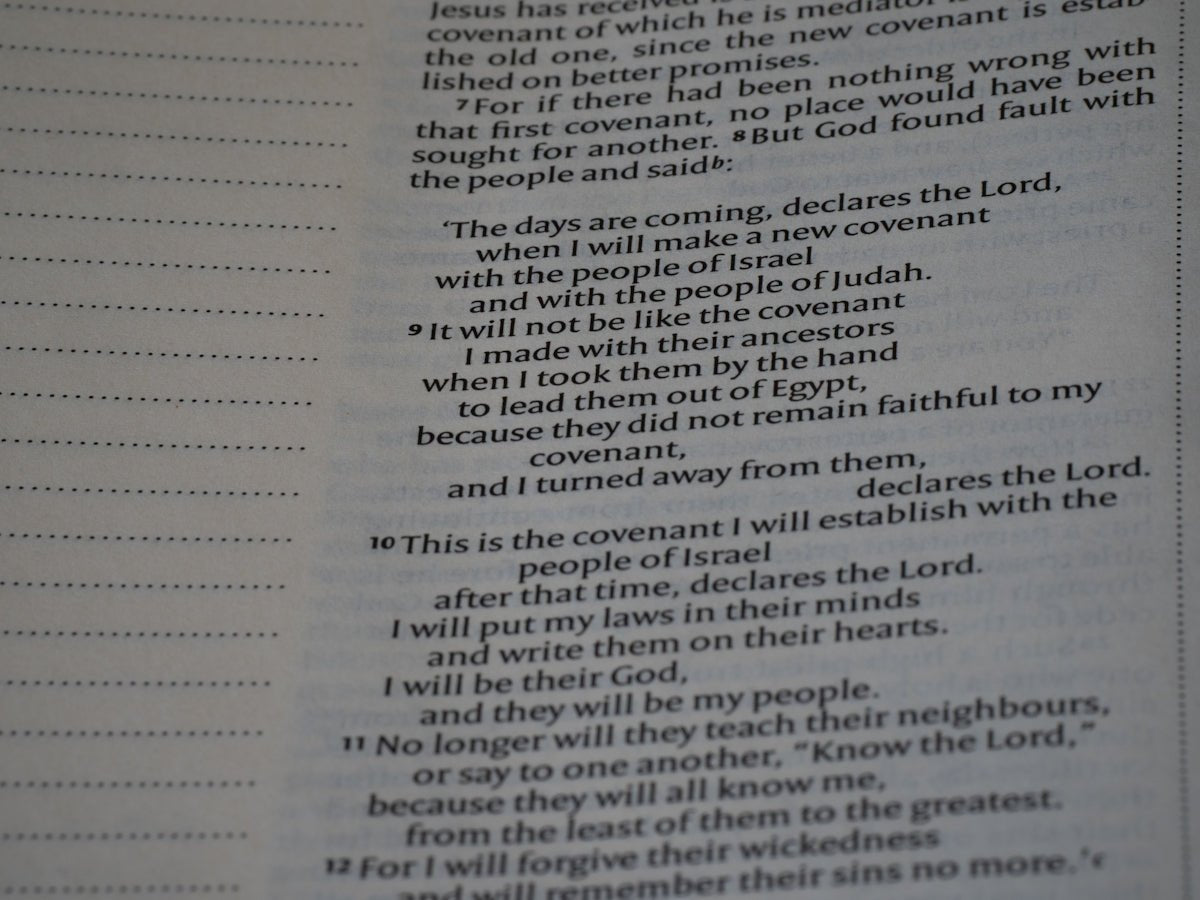 Jesus has received is
covenant of which he is mediator is
the old one, since the new covenant is estab-
lished on better promises.
7 For if there had been nothing wrong with
that first covenant, no place would have been
sought for another. 8 But God found fault with
the people and said b:
‘The days are coming, declares the Lord,
when I will make a new covenant
with the people of Israel
and with the people of Judah.
9 It will not be like the covenant
I made with their ancestors
when I took them by the hand
to lead them out of Egypt,
because they did not remain faithful to my
covenant,
and I turned away from them,
declares the Lord.
10 This is the covenant I will establish with the
people of Israel
after that time, declares the Lord.
I will put my laws in their minds
and write them on their hearts.
I will be their God,
and they will be my people.
11 No longer will they teach their neighbours,
or say to one another, “Know the Lord,”
because they will all know me,
from the least of them to the greatest.
12 For I will forgive their wickedness
and will remember their sins no more.’ c